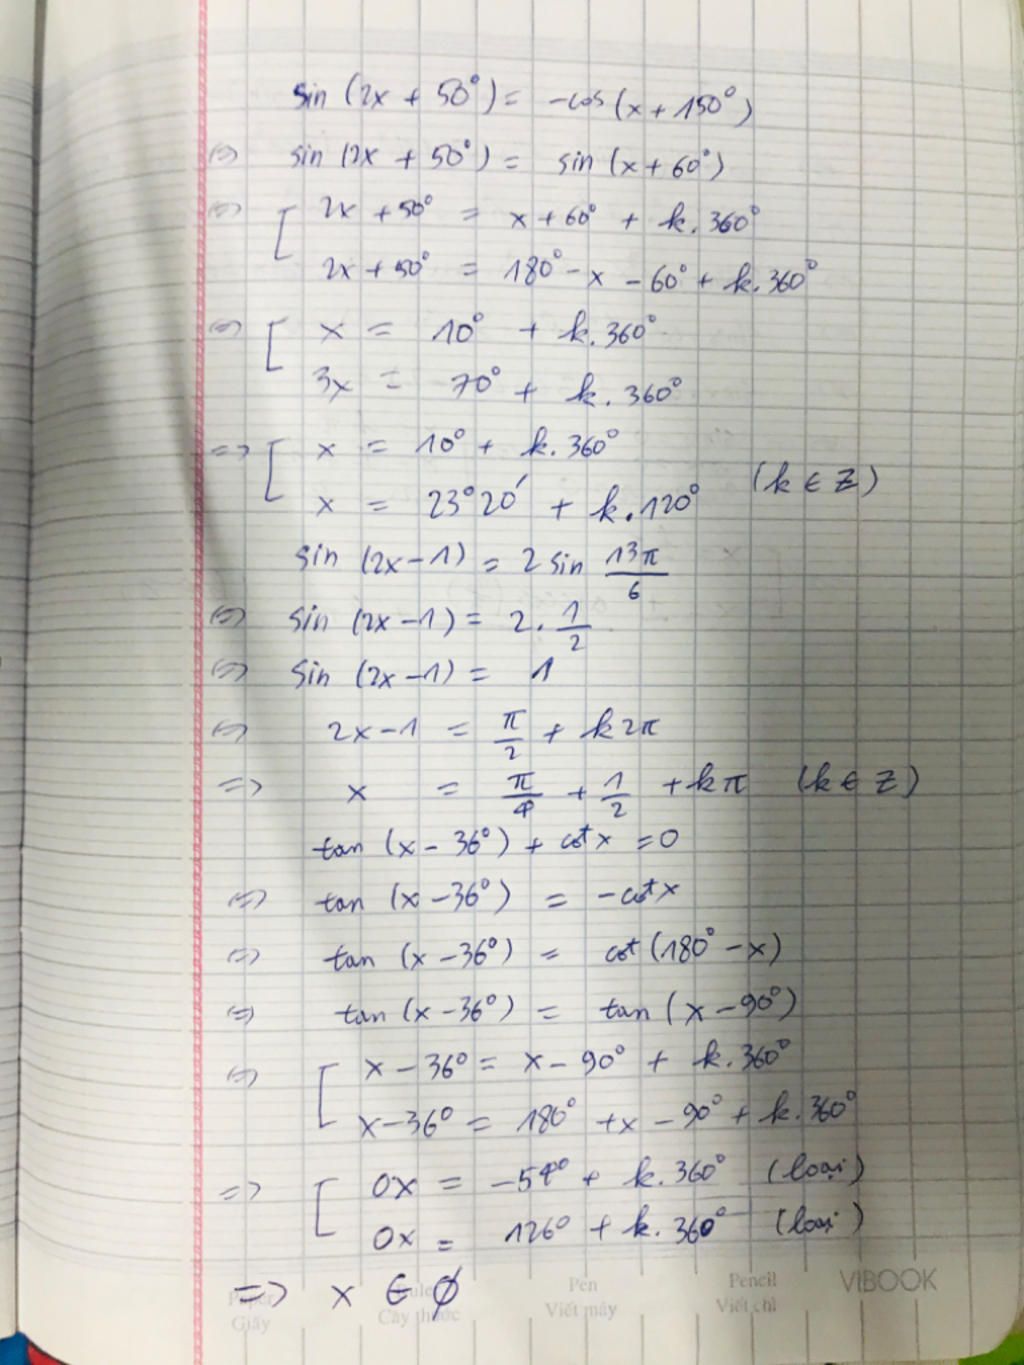 sin (2x + 50°) = -cos (x + 150°)
⇔ sin (2x + 50°) = sin (x + 60°)
⇔ [ 2x + 50° = x + 60° + k.360°
2x + 50° = 180° - x - 60° + k.360°
⇔ [ x = 10° + k.360°
3x = 70° + k.360°
=> [ x = 10° + k.360°
x = 23°20' + k.120° (k ∈ Z)
sin (2x - 1) = 2 sin 13π/6
⇔ sin (2x - 1) = 2 . 1/2
⇔ sin (2x - 1) = 1
⇔ 2x - 1 = π/2 + k2π
=> x = π/4 + 1/2 + kπ (k ∈ Z)
tan (x - 36°) + cot x = 0
⇔ tan (x - 36°) = -cot x
⇔ tan (x - 36°) = cot (180° - x)
⇔ tan (x - 36°) = tan (x - 90°)
⇔ [ x - 36° = x - 90° + k.360°
x - 36° = 180° + x - 90° + k.360°
=> [ 0x = -54° + k.360° (loại)
0x = 126° + k.360° (loại)
=> x ∈ ∅
Paper Ruler Pen Pencil VIBOOK
Giấy Cây thước Viết máy Viết chì